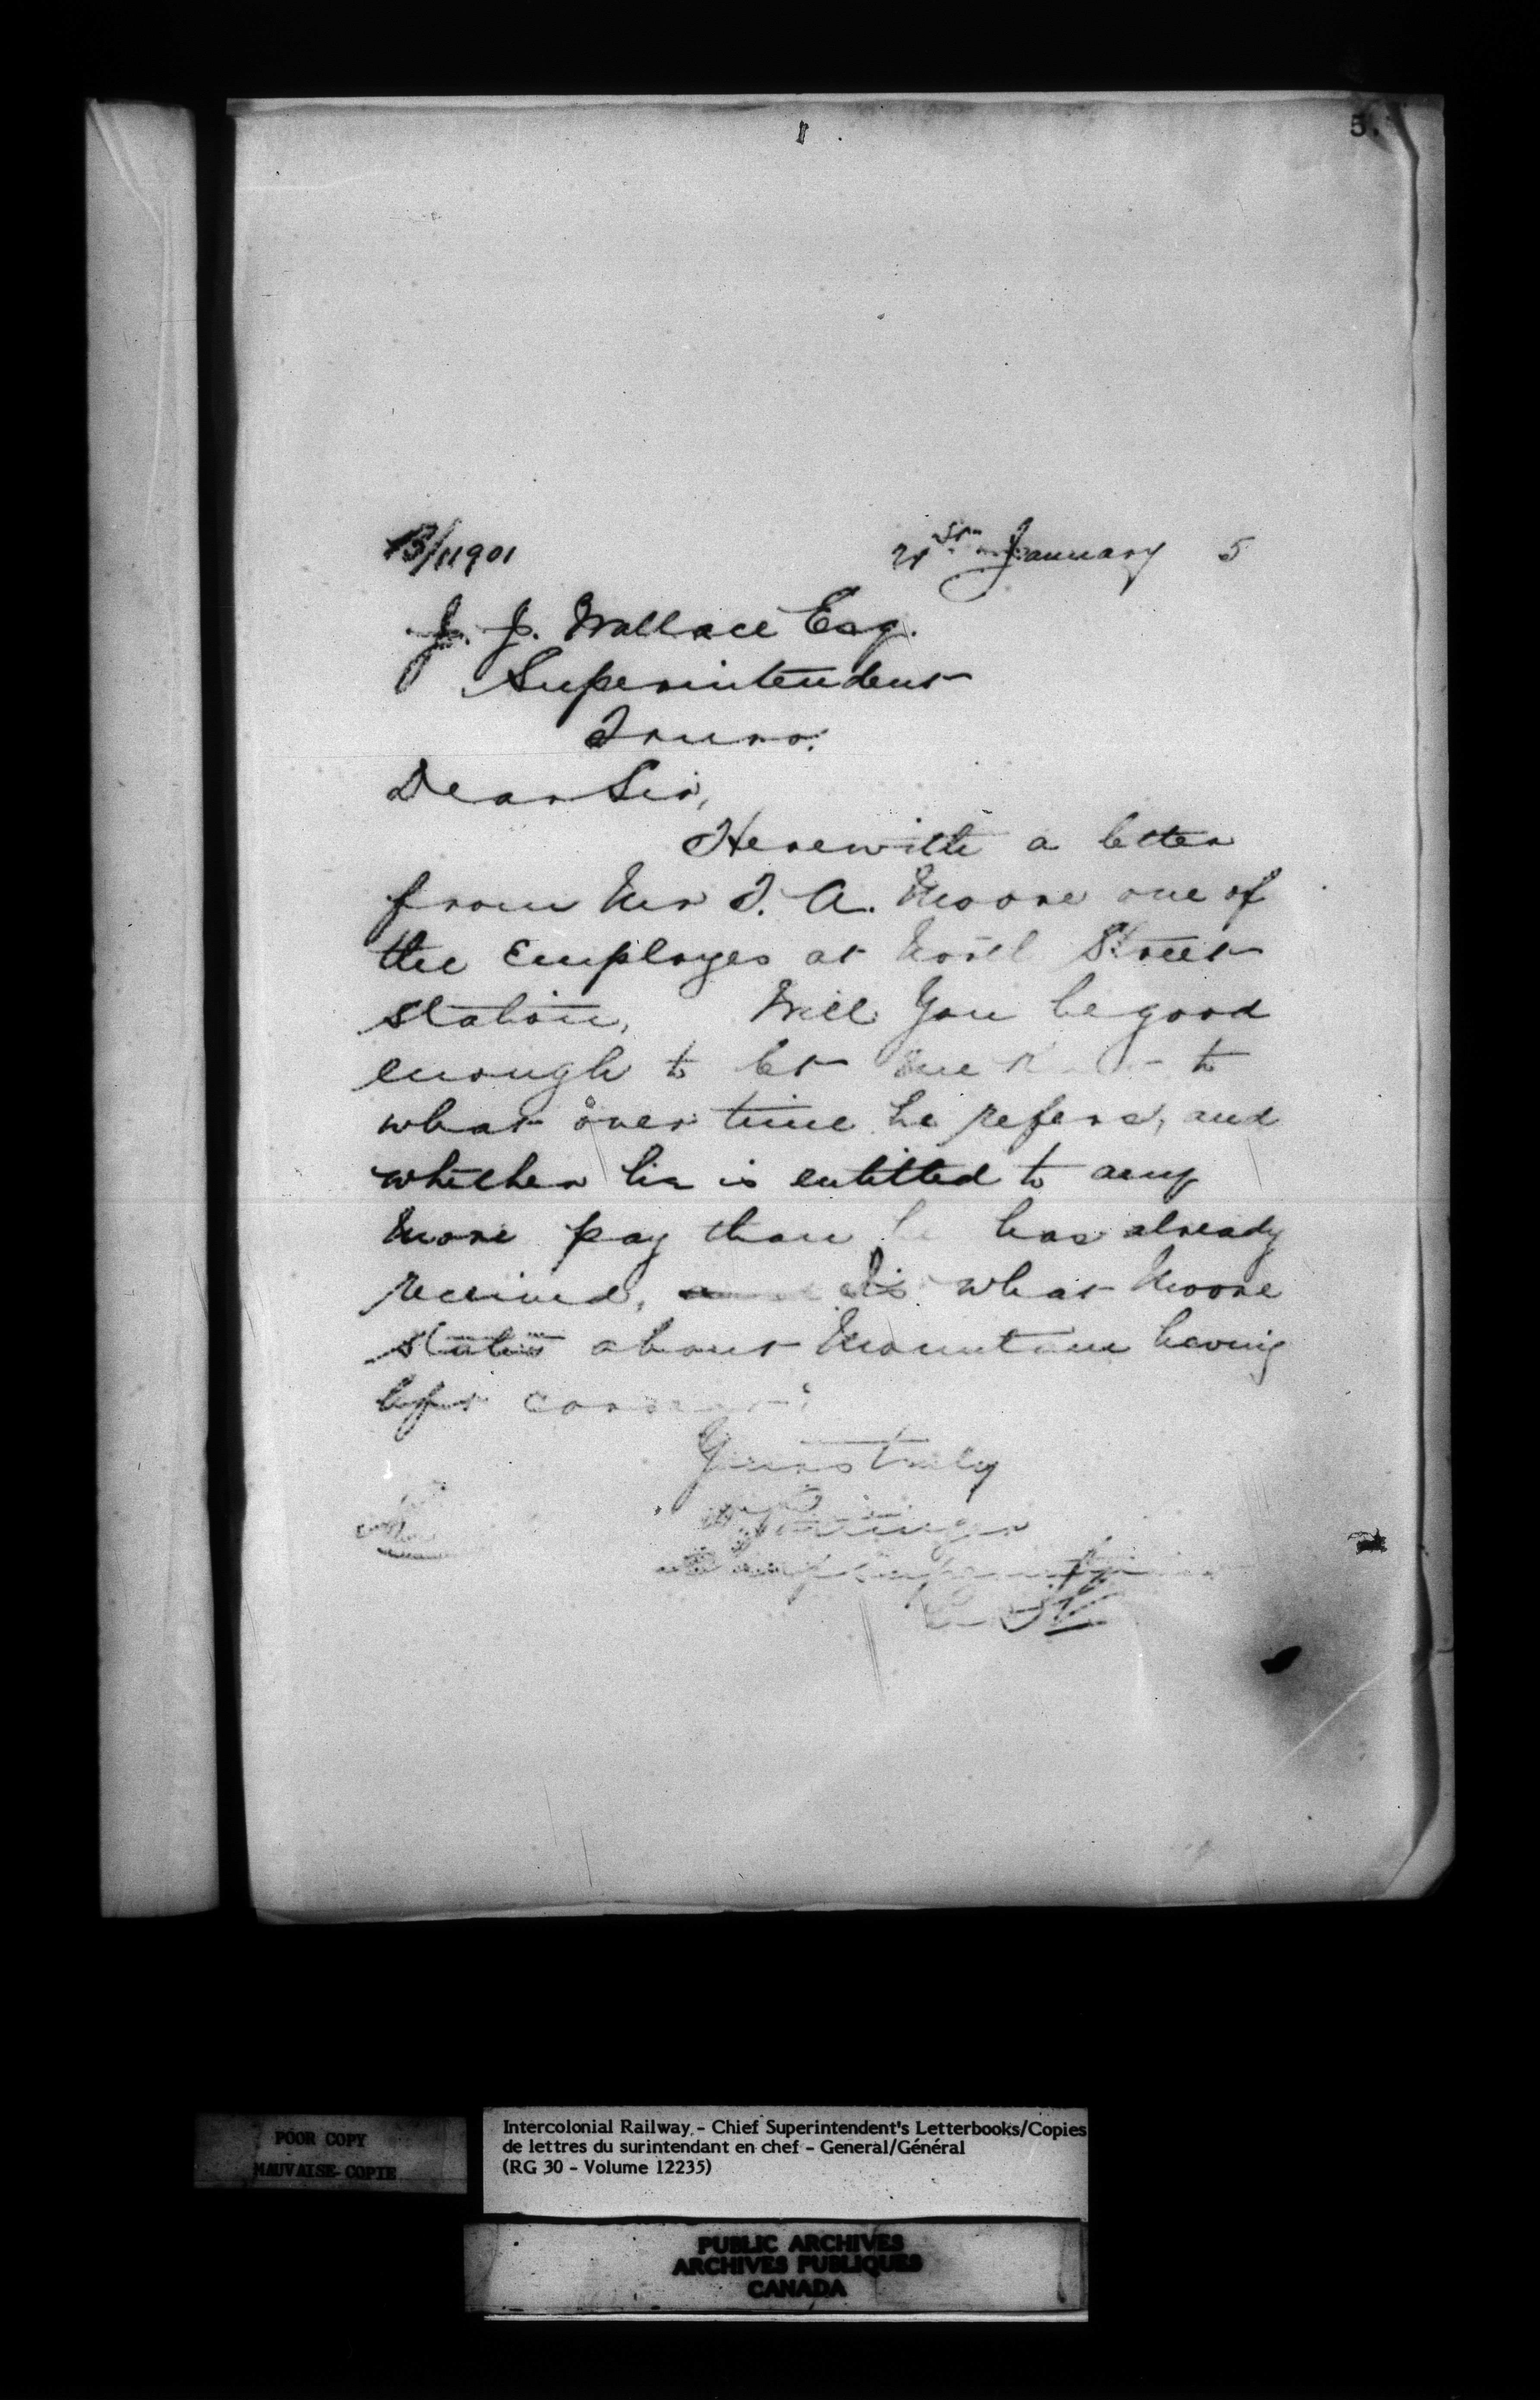 5.
13/11901
21st January 5
J. J. Wallace Esq.
Superintendent
Truro.
Dear Sir,
Herewith a letter
from Mr T. A. Moore one of
the Employes at North Street
station, Will You be good
enough to let me to
what over time he refers, and
whether he is entitled to any
more pay than he has already
received, Is what Moore
states about Mountain having
left correct?
Yours truly
Pottinger
POOR COPY
MAUVAISE COPIE
Intercolonial Railway - Chief Superintendent's Letterbooks/Copies
de lettres du surintendant en chef - General/Général
(RG 30 - Volume 12235)
PUBLIC ARCHIVES
ARCHIVES PUBLIQUES
CANADA